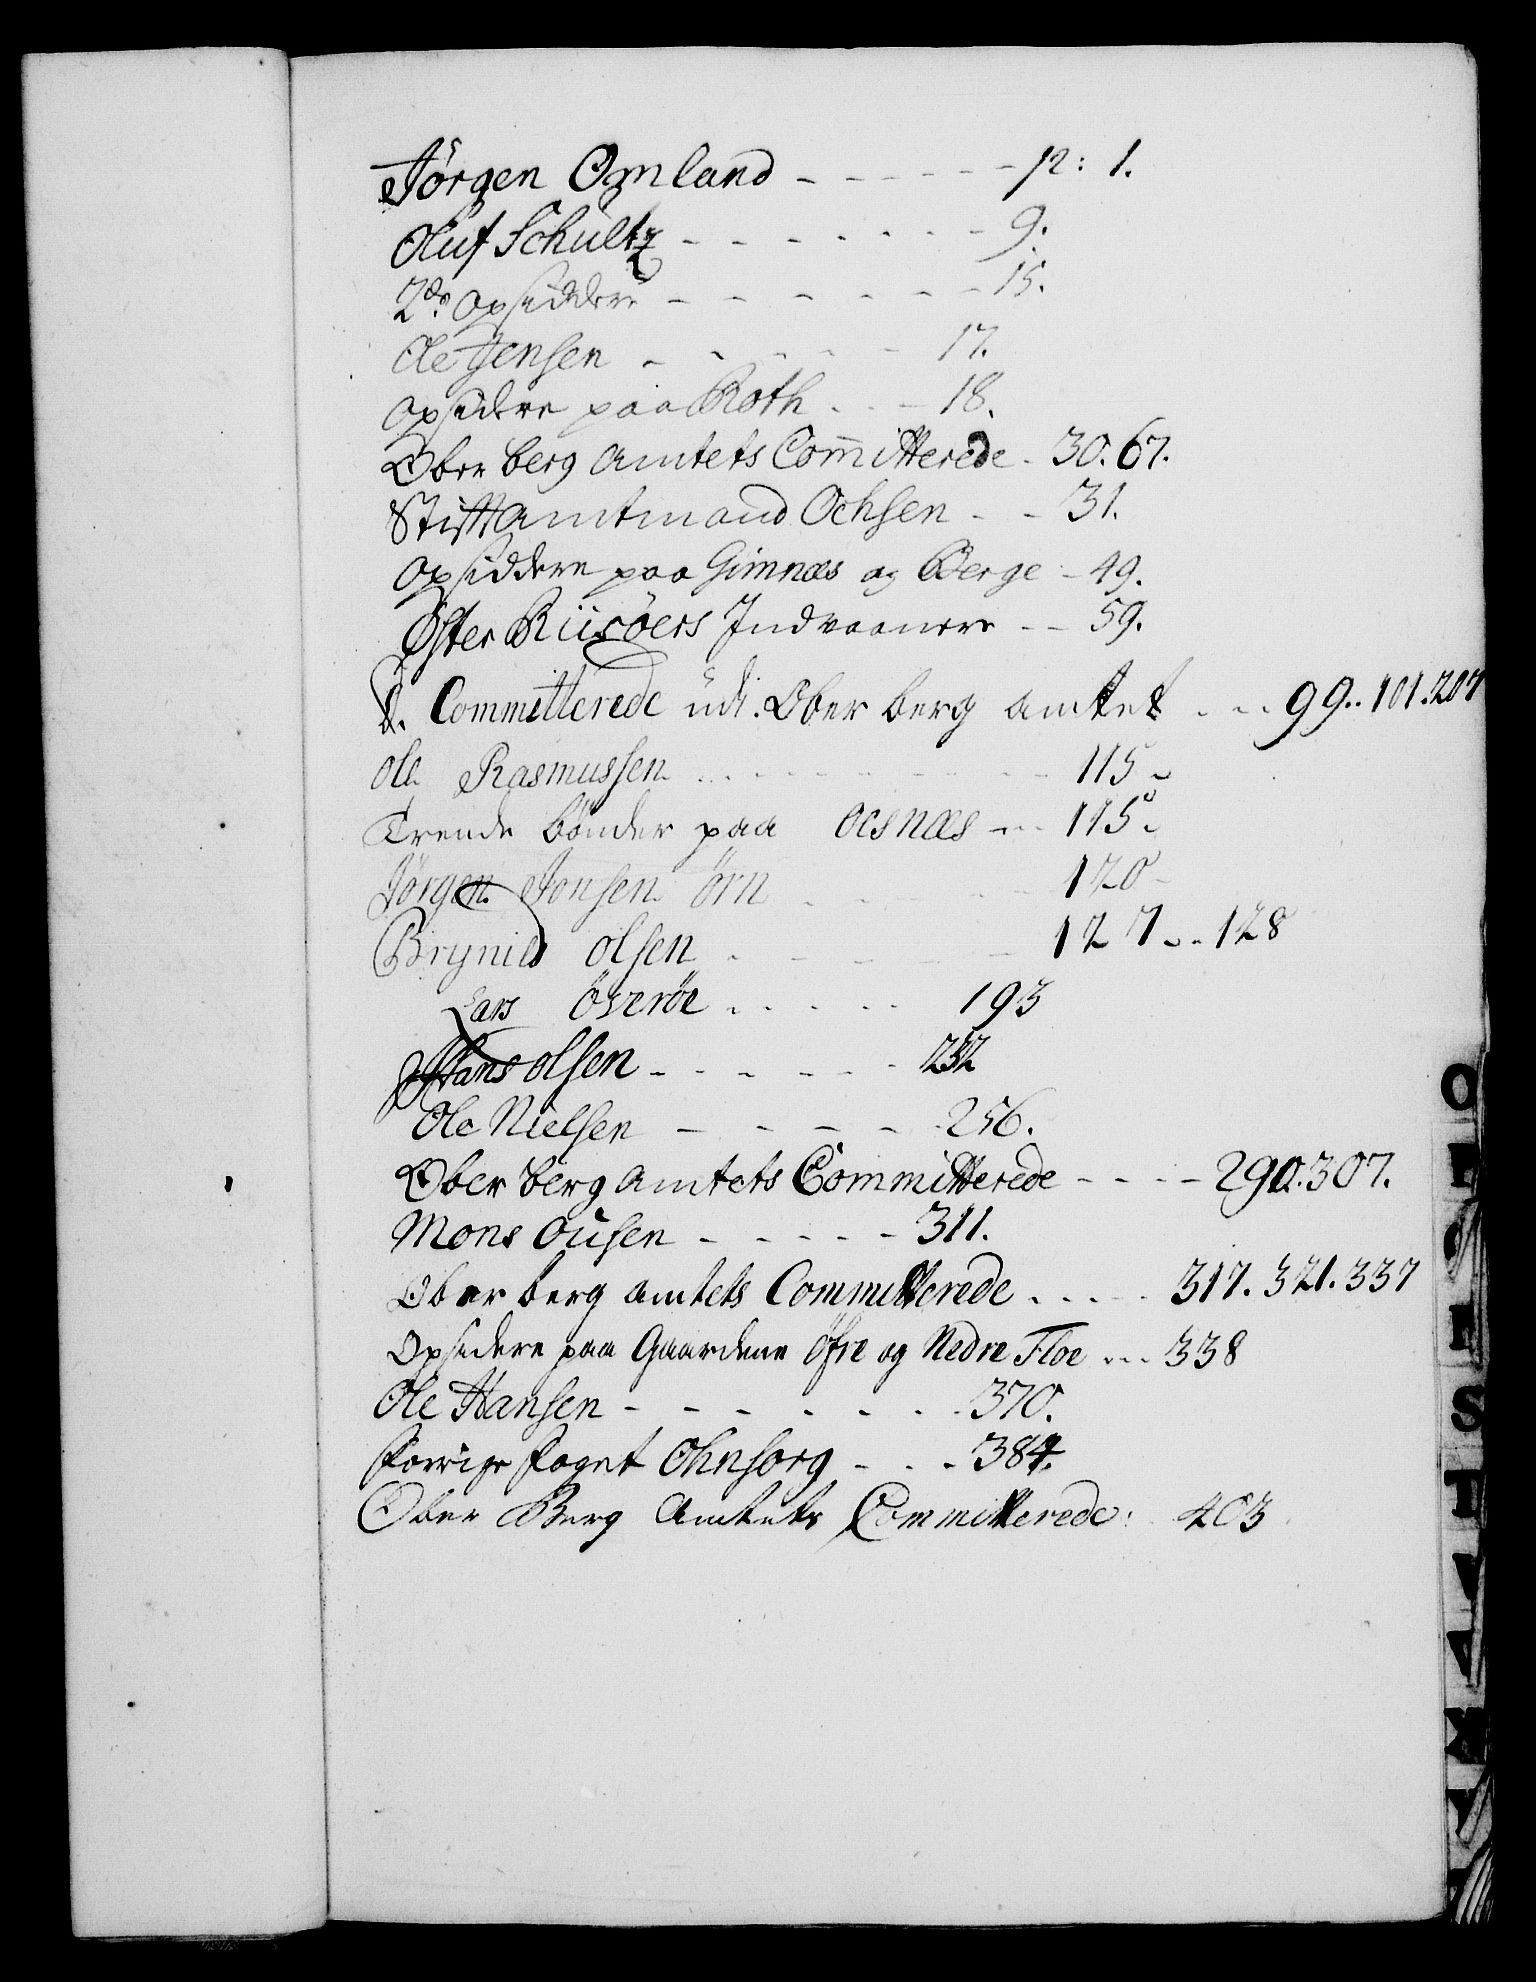 Jørgen Omland - - - - - - p: 1.
Oluf Schultz - - - - - - 9.
2de opsiddere - - - - - - 15.
Ole Jensen - - - - - 17.
opsidere paa Roth - - - 18.
Ober berg Amtets Com̄itterede - 30. 67.
Stiftamtmand Ochsen - - 31.
opsiddere paa Gimnæs og Berge - 49.
Øster Riisöers Indvaanere - - 59.
d. Committerede udi Ober berg amtet - - - 99.. 101. 207
Ole Rasmussen - - - - - - 115
Trende bönder paa ocsnæs - - - 115
Jörgen Jonsen örn - - - 120
Brynild olsen - - - - - 127 - - 128
Lars överöe - - - - - 193
Hans olsen - - - - - - 232
Ole Nielsen - - - - - 256.
Ober berg amtets Committerede - - - - 290. 307.
Mons ousen - - - - - 311.
Ober berg amtets Committerede - - - - 317. 321. 337
Opsidere paa Gaardene öfre og Nedre Floe - - - 338
Ole Hansen - - - - - - - 370.
Forrige foget Ohnsorg - - - 384.
Ober Berg Amtets Committerede: 403